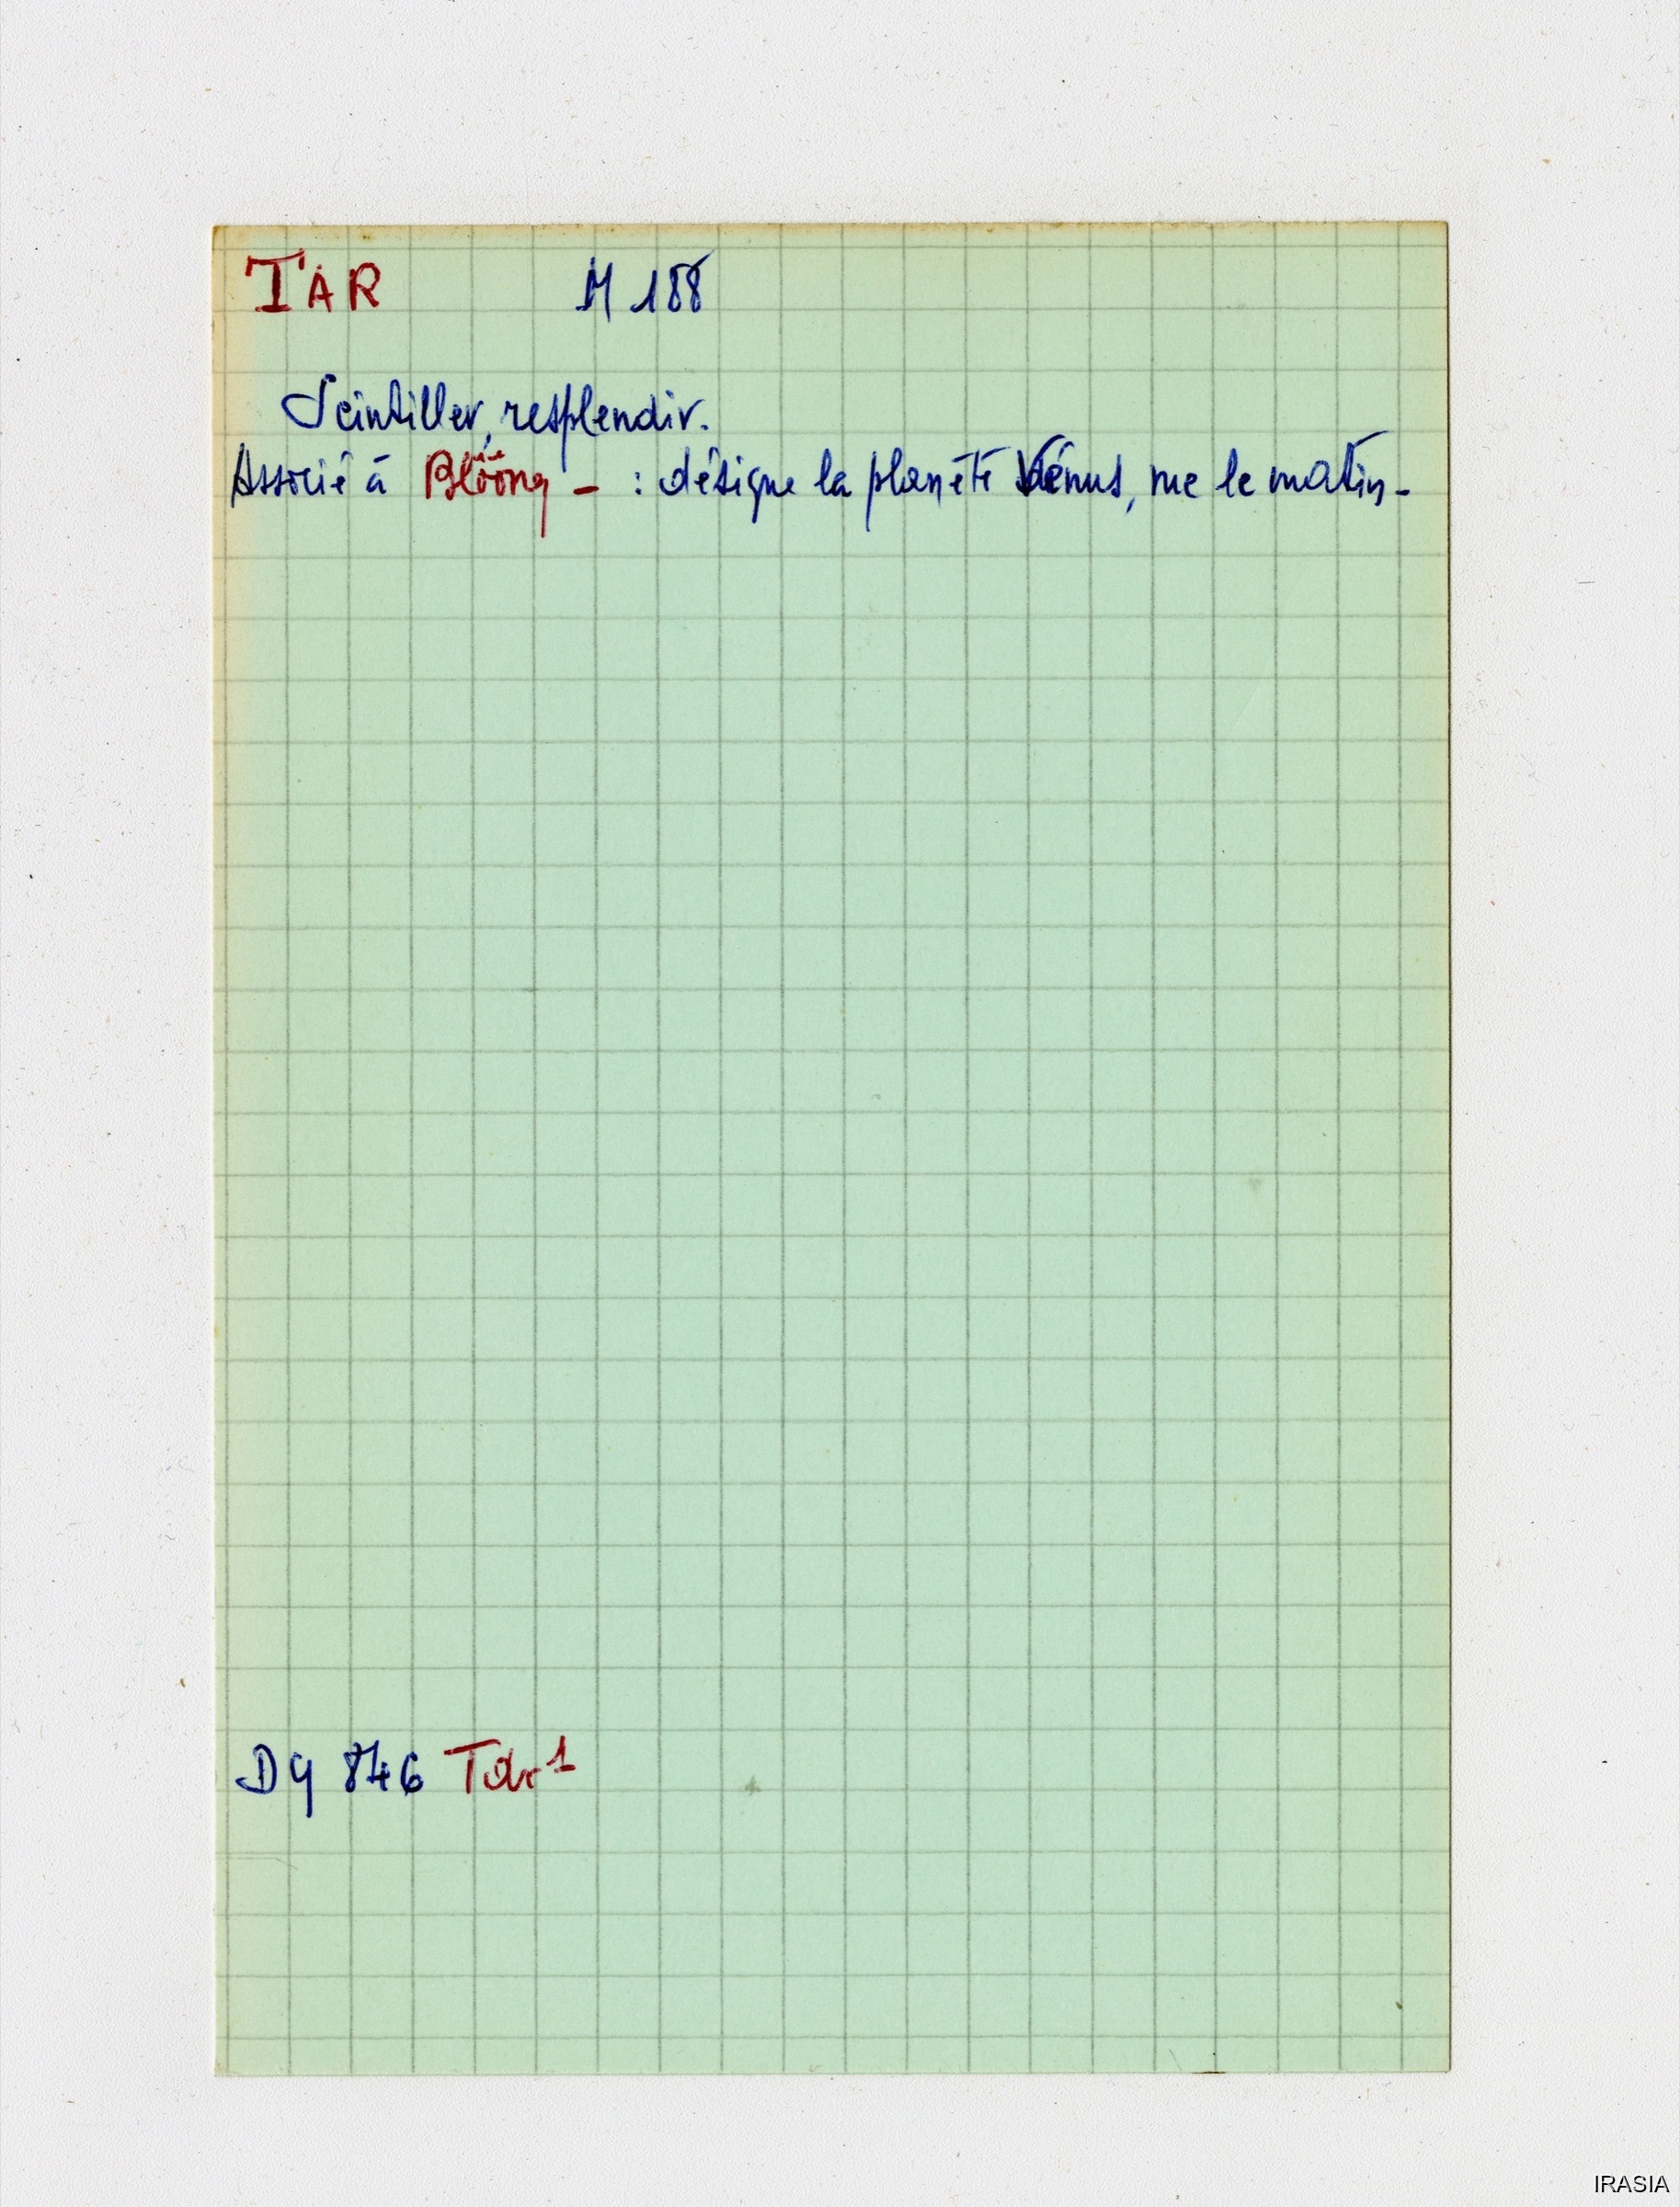 TAR M 188
Scintiller, resplendir.
Associé à Blööng – : désigne la planète Vénus, vue le matin –
DY 846 Tar¹
IRASIA